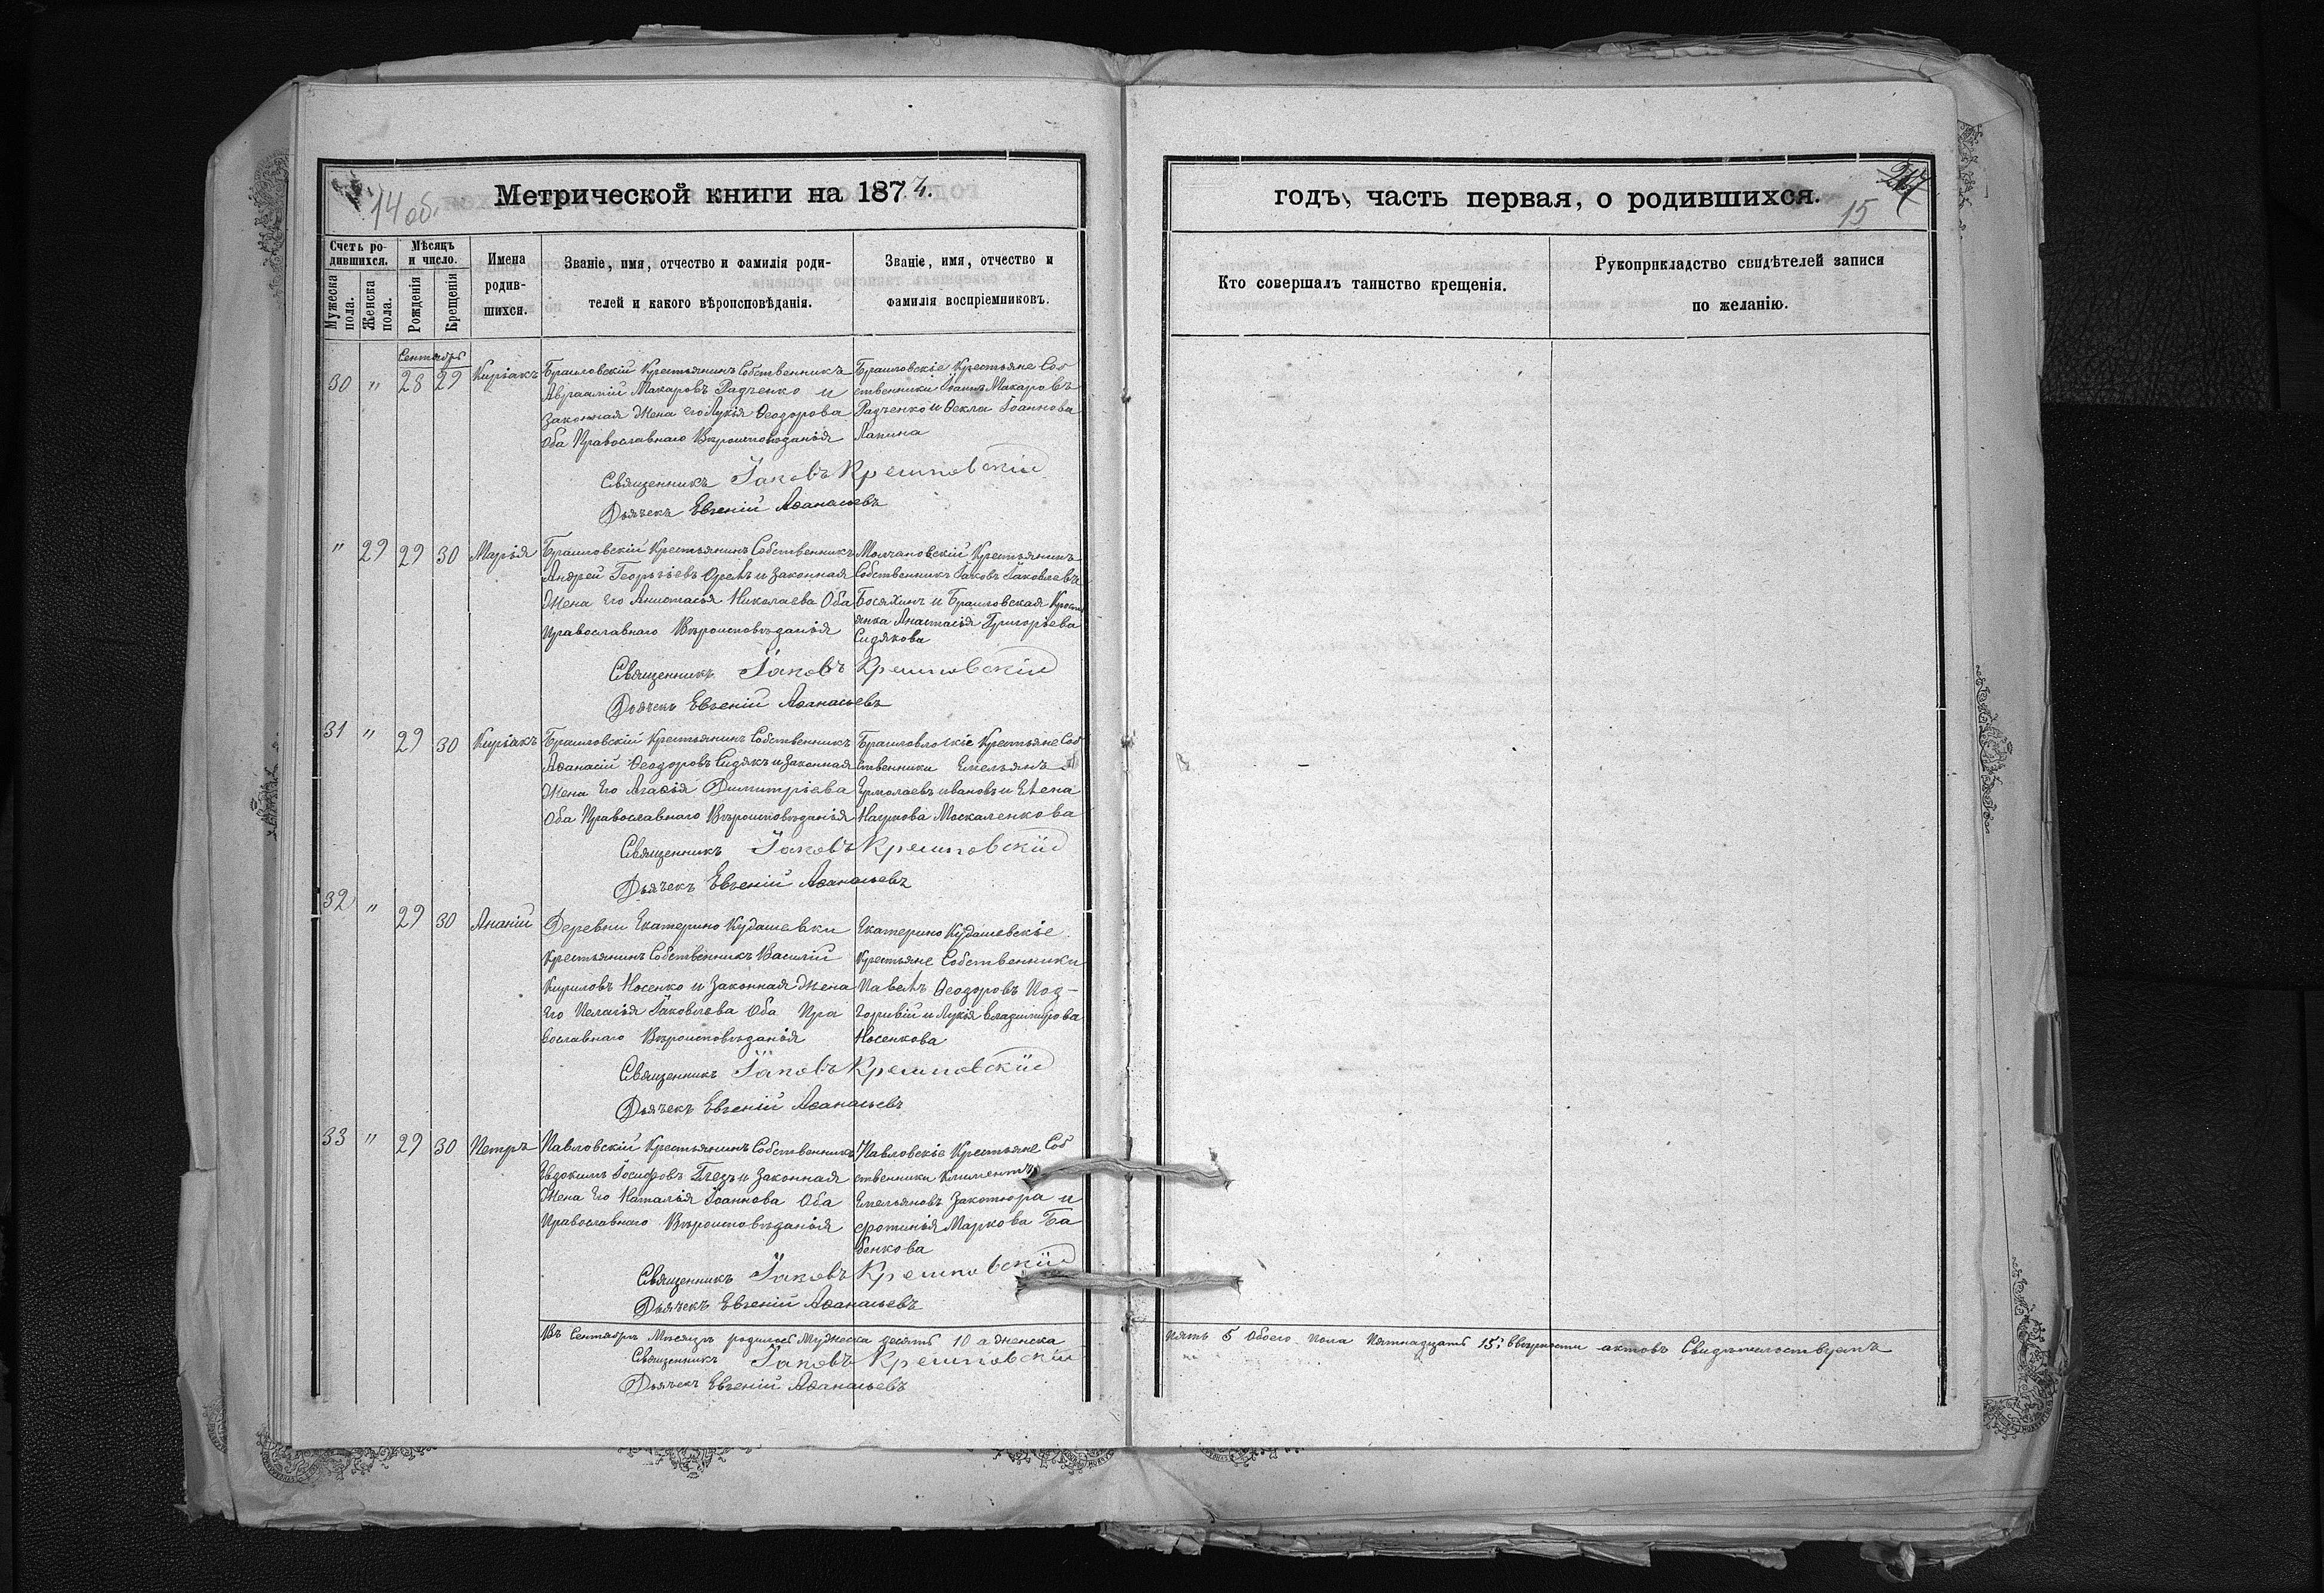 14 об.
Метрической книги на 1874.
Счетъ родившихся.
Мужеска пола.
Женска пола.
Мѣсяцъ и число.
Рожденія
Крещенія
Имена родившихся.
Званіе, имя, отчество и фамилія роди-
телей и какого вѣроисповѣданія.
Званіе, имя, отчество и
фамилія воспріемниковъ.
Сентябрь
30 " 28 29 Киріакъ
Браиловскій Крестьянинъ Собственникъ
Авраамій Макаровъ Радченко и
законная Жена его Лукія Ѳеодорова
Оба Православнаго Вѣроисповѣданія
Браиловскіе Крестьяне Соб
ственники Іоаннъ Макаровъ
Радченко и Ѳекла Іоаннова
Лапина
Священникъ Іаковъ Крешновскій
Дьячекъ Евгеній Аѳанасьевъ
" 29 29 30 Марія
Браиловскій Крестьянинъ Собственникъ
Андрей Георгіевъ Орелъ и Законная
Жена Его Анастасья Николаева Оба
Православнаго Вѣроисповѣданія
Молчановскій Крестьянинъ
Собственникъ Іаковъ Іаковлевъ
Босяхинъ и Браиловская Кресть
янка Анастасія Григорьева
Сидякова
Священникъ Іаковъ Крешновскій
Дьячекъ Евгеній Аѳанасьевъ
31 " 29 30 Киріакъ
Браиловскій Крестьянинъ Собственникъ
Аѳанасій Ѳеодоровъ Сидякъ и Законная
Жена Его Агаѳія Димитріева
Оба Православнаго Вѣроисповѣданія
Браиловловскіе Крестьяне Соб
ственники Емельянъ
Ермолаевъ ивановъ и Елена
Наумова Москаленкова
Священникъ Іаковъ Крешновскій
Дьячекъ Евгеній Аѳанасьевъ
32 " 29 30 Ананій
Деревни Екатерино Кудашевки
Крестьянинъ Собственникъ Василій
Кириловъ Носенко и Законная Жена
Его Пелагія Іаковлева Оба Пра
вославнаго Вѣроисповѣданія
Екатерино Кудашевскіе
Крестьяне Собственники
Павелъ Ѳеодоровъ Под-
горивій и Лукія владимірова
Носенкова
Священникъ Іаковъ Крешновскій
Дьячекъ Евгеній Аѳанасьевъ
33 " 29 30 Петръ
Павловскій Крестьянинъ Собственникъ
Евдокимъ Іосифовъ Глезъ и Законная
Жена Его Наталія Іоаннова Оба
Православнаго Вѣроисповѣданія
Павловскіе Крестьяне Соб
ственники Климентъ
Емельяновъ Закотюра и
фотинія Маркова Ба
бенкова
Священникъ Іаковъ Крешновскій
Дьячекъ Евгеній Аѳанасьевъ
Въ Сентябрѣ Мѣсяцѣ родилось Мужеска десять 10 а женска
Священникъ Іаковъ Крешновскій
Дьячекъ Евгеній Аѳанасьевъ
годъ, часть первая, о родившихся.
15
Кто совершалъ таинство крещенія.
Рукоприкладство свидѣтелей записи
по желанію.
пять 5 Обоего Пола Пятнадцать 15; ввѣрности актовъ Свидѣтельствуемъ